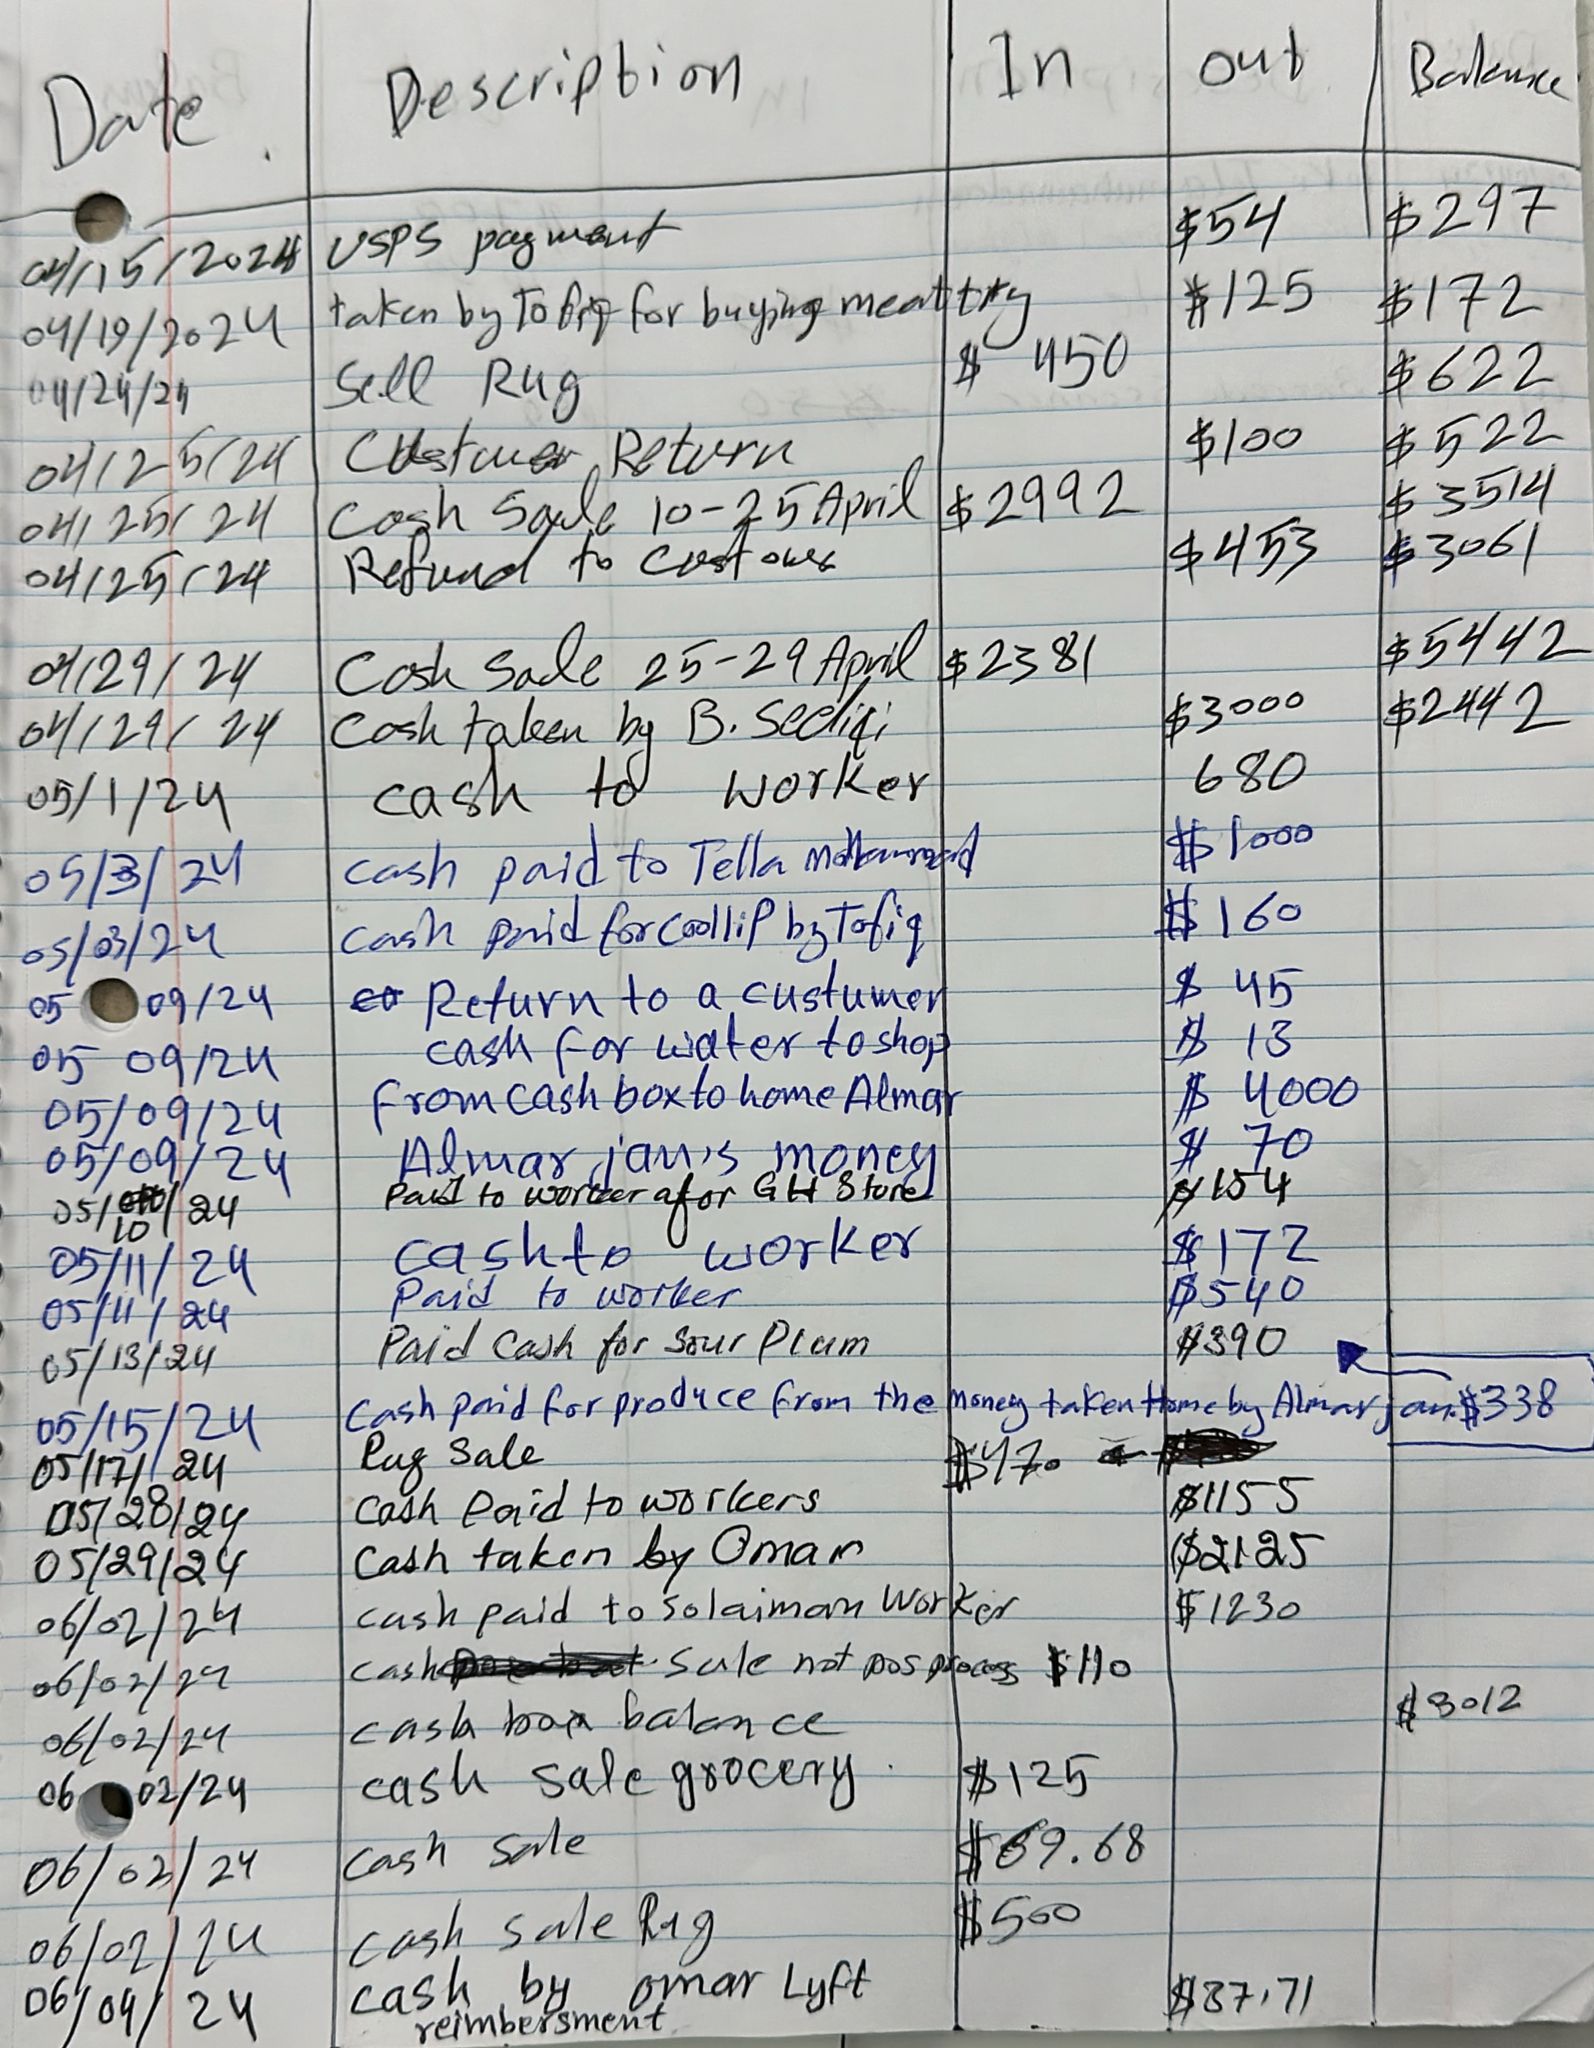 Date Description In out Balance
04/15/2024 USPS payment $54 $297
04/19/2024 taken by Tofiq for buying meat try $125 $172
04/24/24 Sell Rug $ 450 $622
04/25/24 Return $100 $522
04/25/24 Cash Sale 10-25 April $2992 $3514
04/25/24 Refund to $453 $3061
04/29/24 Cash Sale 25-29 April $2381 $5442
04/29/24 Cash taken by B. Sediqi $3000 $2442
05/1/24 cash to worker 680
05/3/24 cash paid to Tella $1000
05/03/24 cash paid for by Tofiq $160
05 09/24 Return to a custumer $ 45
05 09/24 cash for water to shop $ 13
05/09/24 From cash box to home Almar $ 4000
05/09/24 Almar jan's money $ 70
05/10/24 Paid to worker for GH Store $154
05/11/24 cash to worker $172
05/11/24 Paid to worker $540
05/13/24 Paid Cash for Sour Plum $390
05/15/24 Cash paid for produce from the money taken Home by Almar jan. $338
05/17/24 Rug Sale $470
05/28/24 Cash Paid to workers $1155
05/29/24 Cash taken by Omar $2125
06/02/24 cash paid to Solaiman Worker $1230
06/02/24 cash Sale not pos process $110
06/02/24 cash box balance $3012
06 02/24 cash sale grocery. $125
06/02/24 cash sale $69.68
06/02/24 cash sale Rug $500
06/04/24 cash by omar Lyft $37.71
reimbersment